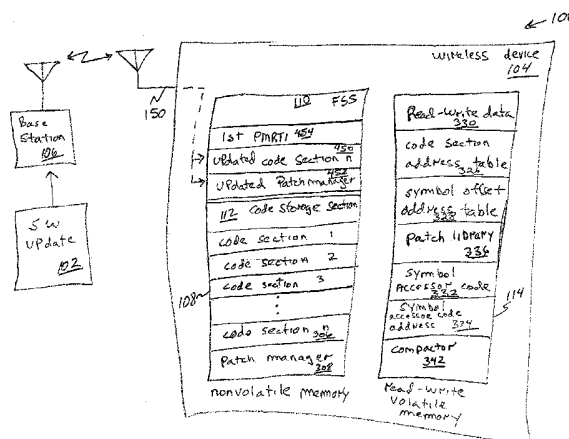 100
wireless device
104
150
Base
Station
106
SW
update
102
110 FSS
1st PMRTI 454
updated code section n 450
updated Patch manager 452
112 code storage section
code section 1
code section 2
code section 3
108
code section n
306
Patch manager
308
nonvolatile memory
Read-Write data
330
code section
address table
326
symbol offset
address table
328
Patch library
336
symbol
accessor code
332
symbol
accessor code
address 334
114
compactor
342
read-write
volatile
memory